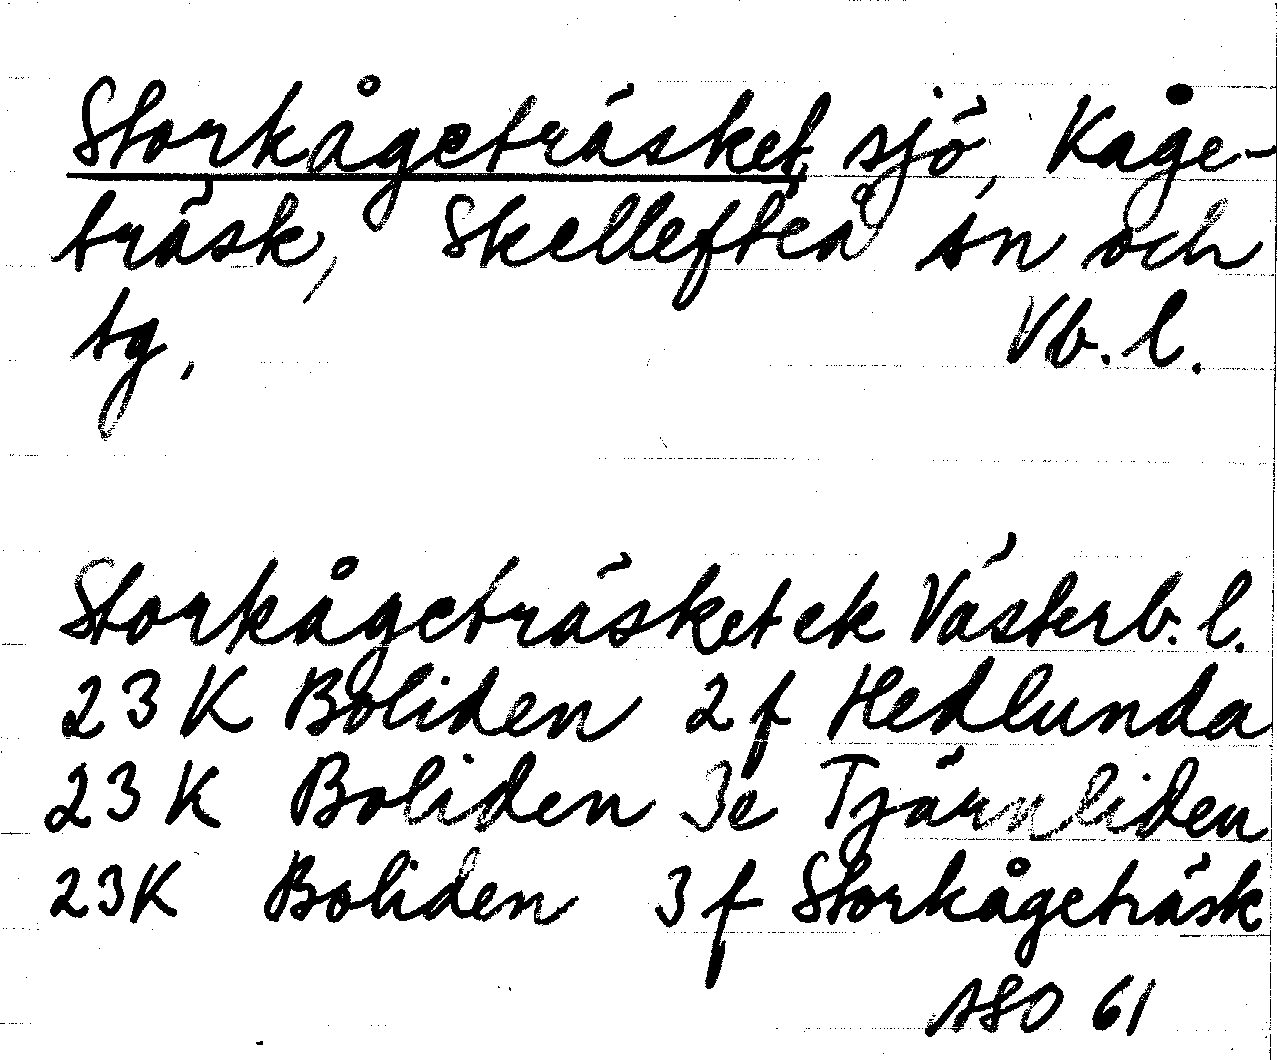 Storkågeträsket, sjö, Kåge-
träsk, Skellefteå sn och
tg, Vb. l.
Storkågeträsket ek Västerb. l.
23 K Boliden 2 f Hedlunda
23 K Boliden 3e Tjärnliden
23K Boliden 3 f Storkågeträsk
ASO 61